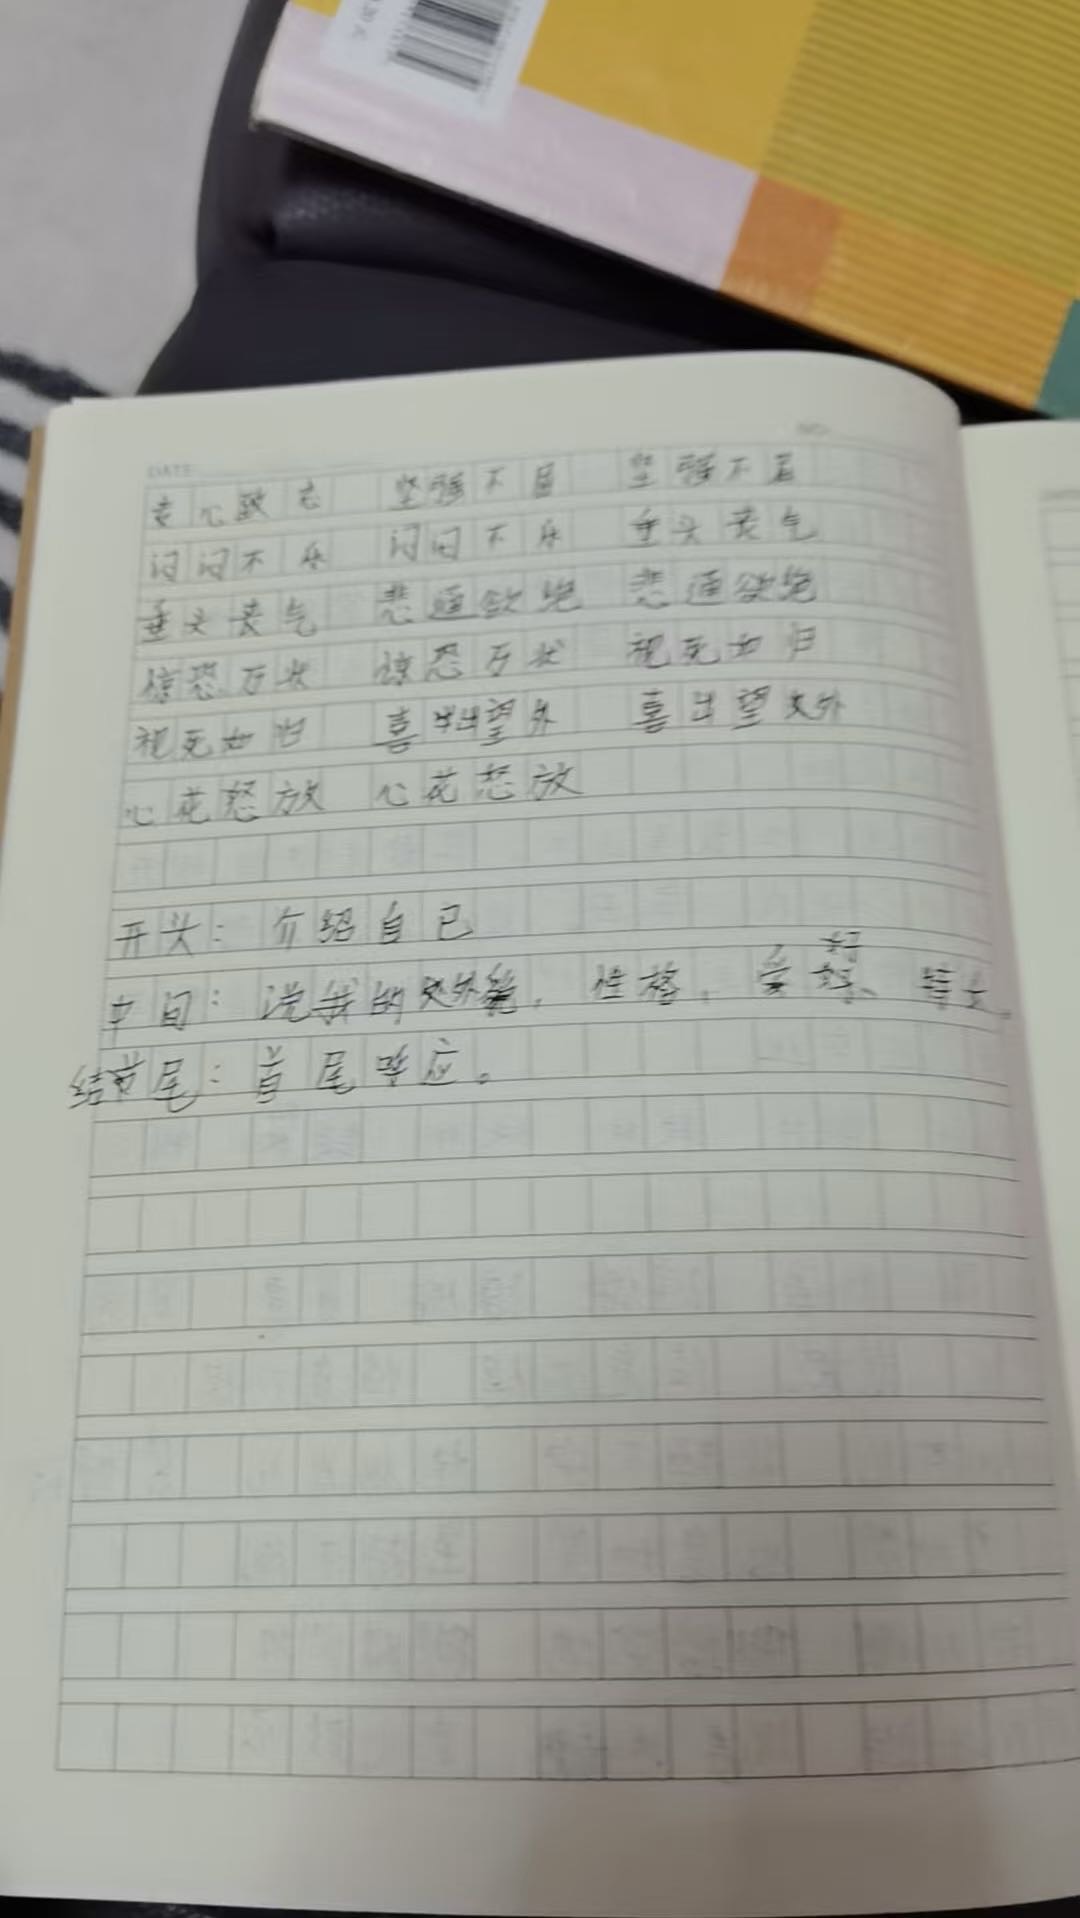 DATE
NO.
专心致志 坚强不屈 坚强不屈
闷闷不乐 闷闷不乐 垂头丧气
垂头丧气 悲通欲绝 悲通欲绝
惊恐万状 惊恐万状 视死如归
视死如归 喜出望外 喜出望外
心花怒放 心花怒放
开头：介绍自己
中间：说我的外貌，性格，爱好、特长。
结尾：首尾呼应。